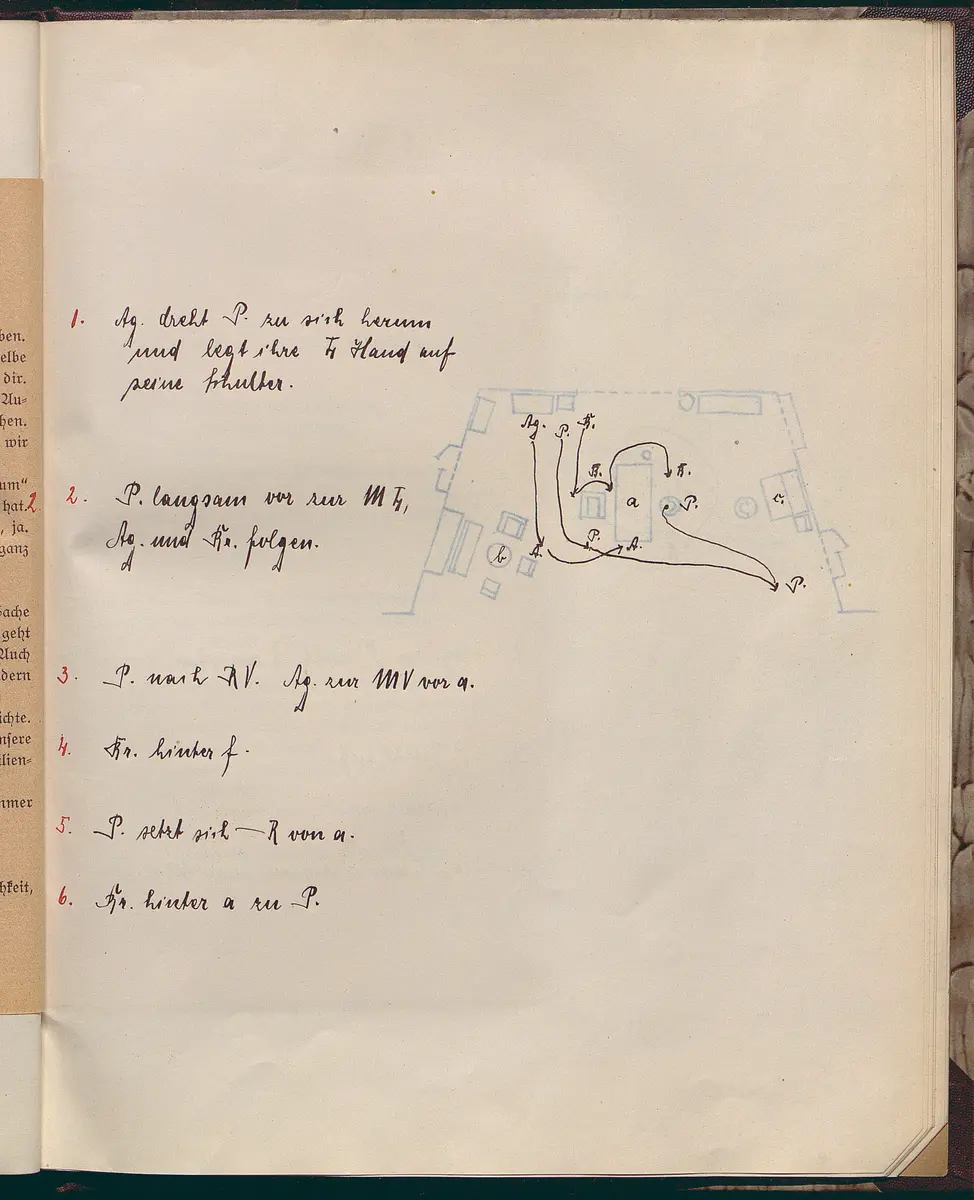 ben.
elbe
dir.
Au-
hen.
wir
um"
hat.
2
ja.
ganz
ache
geht
Auch
dern
ichte.
nsere
lien-
mmer
hkeit,
1. Ag. dreht P. zu sich herum
und legt ihre L Hand auf
seine Schulter.
2. P. langsam vor zur ML,
Ag. und Kr. folgen.
3. P. nach RV. Ag. zur MV vor a.
4. Kr. hinter f.
5. P. setzt sich — R von a.
6. Kr. hinter a zu P.
Ag. P. K.
K. K.
a P. c
P. A.
b A.
P.